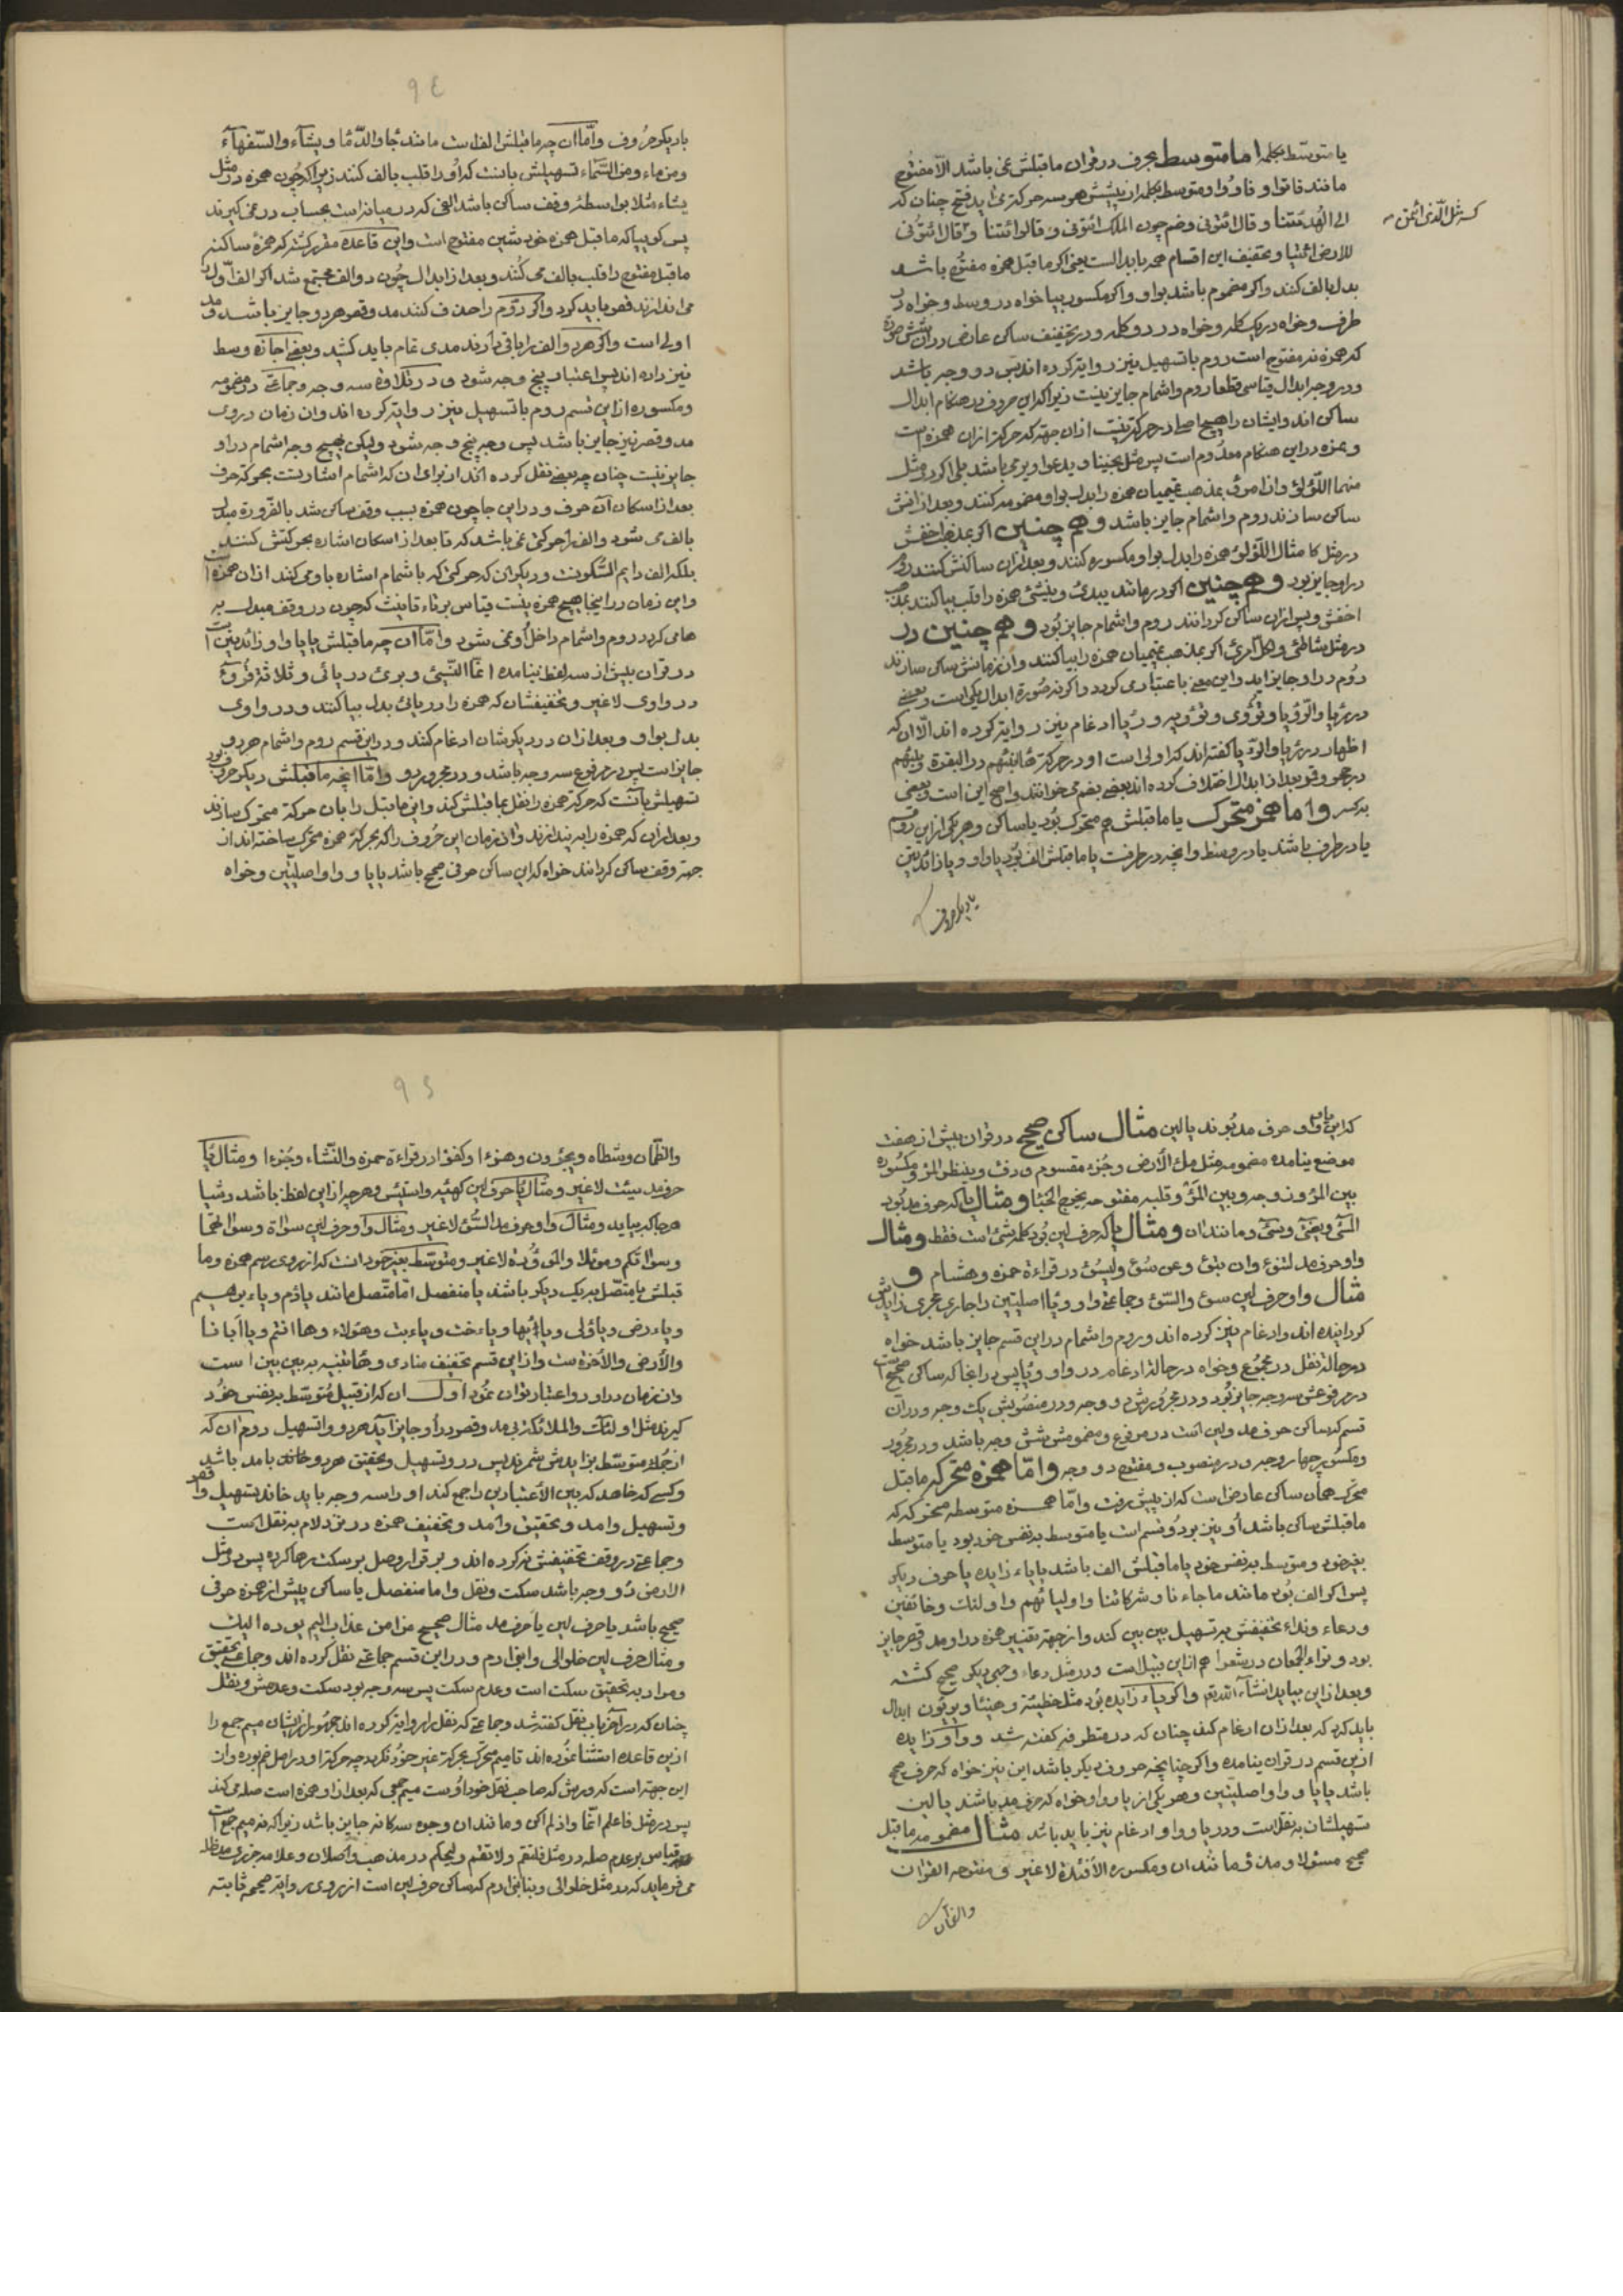 یا متوسّط بکلمه اما متوسط بحرف در قران ماقبلش نمی باشد الّا مفتوح
مانند فاتوا و فاؤوا و متوسط بکلمه از پیشش هر سه حرکة می اید فتح چنان که
الی الهُدی ئتنا و قال ائتونی وضم چون الملک ائتونی و قالوا ئتنا و قال ائتونی
کسر مثل الّذی ائتمن
للارض ائتیا و تخفیف این اقسام همه بابدالست یعنی اکر ماقبل همزه مفتوح باشد
بدل بالف کنند واکر مضموم باشد بواو واکر مکسور بیا خواه در وسط و خواه در
طرف وخواه در یک کلمه وخواه در دو کلمه و در تخفیف ساکن عارض دران شش صورة
که همزه نه مفتوح است روم با تسهیل نیز روایة کرده اند پس دو وجه باشد
و در وجه ابدال قیاسی قطعا روم و اشمام جایز نیست زیراکه این حروف در هنکام ابدال
ساکن اند وایشان را هیچ اصلا در حرکة نیست ازان جهة که حرکة ازان همزه است
و همزه در این هنکام معدوم است پس مثل یخشی و یدعوا و یرمی باشد بلی اکر در مثل
منهما اللّؤلؤ وان امرؤ بمذهب تمیمیان همزه را بدل بواو مضمومه کنند وبعد ازانش
ساکن سازند روم واشمام جایز باشد وهم چنین اکر بمذهب اخفش
در مثل کامثال اللّؤلؤ همزه را بدل بواو مکسوره کنند وبعد ازان ساکنش کنند روم
در او جایز بود وهم چنین اکر در مانند یبدئ وینشئ همزه را قلب بیا کنند بمذهب
اخفش و پس ازان ساکن کردانند روم واشمام جایز بُود وهم چنین در
در مثل شاطئ و لکلّ امرئ اکر بمذهب تمیمیان همزه را بیا کنند وان زمانش ساکن سازند
رُوم در او جایز اید و این معنی باعتباری کردد واکر نه صُورة ابدال یکی است و بعضی
در رئیا والرّؤیا و تؤوی و تؤویه و رُیا ادغام نیز روایة کرده اند الّا ان که
اظهار در رئیا والرّؤیا کفته اند که اولی است و در حرکة ها انبئهم در البقرة و نبئهم
در حجر و قمر بعد از ابدال اختلاف کرده اند بعضی بضم می خوانند واصح این است و بعضی
بکسر واما همزه متحرک یا ماقبلش هم متحرک بُود یا ساکن و هر یکی از این دو قسم
یا در طرف باشد یا در وسط وانچه در طرفست یا ماقبلش الف بُود یا واو و یا زائدتین
یا دیکر حروف
٩٤
یا دیکر حُروف وامّا ان چه ماقبلش الف است مانند جا والدّما ویشآء والسّفهآء
ومن ماء ومن السّمآء تسهیلش بانست که اُو را قلب بالف کنند زیراکه چُون همزه در مثل
یشاء مثلا بواسطهٔ وقف ساکن باشد الفی که در میانه است بحساب در نمی کیرند
پس کوییا که ماقبل همزه خود شین مفتوح است واین قاعده مقرر کشته که همزهٔ ساکنه
ماقبل مفتوح را قلب بالف می کنند وبعد از ابدال چُون دو الف مجتمع شد اکر الف اوّل را
می اندازند قصر باید کرد واکر دوّم را حذف کنند مد وقصر هر دو جایز باشد و مد
اولی است واکر هر دو الف را باقی دارند مدی تمام باید کشید وبعضی اجازه وسط
نیز داده اند پس اعتبار پنج وجه شود و در تلاوة سه وجه و جماعتی در مضمومه
ومکسوره از این قسم روم با تسهیل نیز روایة کرده اند وان زمان در وی
مد وقصر نیز جایز باشد پس وجه پنج وجه شود ولیکن هیچ وجه اشمام در او
جایز نیست چنان چه بعضی نقل کرده اند از برای ان که اشمام اشارتست بحرکة حرف
بعد از اسکان آن حرف و در این جا چون همزه بسبب وقف ساکن شد بالضّرورة مبدل
بالف می شود والف را حرکتی نمی باشد که تا بعد از اسکان اشاره بحرکتش کنند
بلکه الف دایم السّکونست و دیکر ان که حرکتی که باشمام اشاره باو می کنند ازان همزه است
واین زمان در اینجا هیچ همزه نیست قیاس بر تاء تانیث که چون در وقف مبدل به
ها می کردد روم واشمام داخل اُو نمی شود وامّا ان چه ماقبلش یا یا واو زائدتین است
در قران بیش از سه لفظ نیامده انّما النّسیئ وبرئ در یائی و ثلاثة قُروء
در واوی لاغیر وتخفیفشان که همزه را در یائی بدل بیا کنند ودر واوی
بدل بواو و بعد ازان در دیکرشان ادغام کنند ودر این قسم روم واشمام هر دو
جایز است پس در مرفوع سه وجه باشد و در مجرور دو وامّا انچه ماقبلش دیکر حرف بود
تسهیلش بانست که حرکة همزه را نقل بماقبلش کنند واین ماقبل را بان حرکة متحرک سازند
وبعد ازان که همزه را بیندازند وان زمان این حُروف را که بحرکة همزه متحرک ساخته اند از
جهة وقف ساکن کردانند خواه که این ساکن حرفی صحیح باشد یا یا و واو اصلیتین وخواه
که این یا و واو حرف مد بُوند یا لین مثال ساکن صحیح در قران بیش از هفت
موضع نیامده مضمومه مثل ملء الأرض وجُزء مقسوم ودفء وینظر المرء ومکسوره
بین المرء وزوجه و بین المرء وقلبه مفتوحه یخرج الخبأ ومثال یا که حرف مد بُود
المسئ و یضئ و سئ ومانند ان ومثال یا که حرف لین بُود کلمه شئ است فقط ومثال
واو حرف مد لتنوءُ وان تبوء وعن سُوء ولیسُوء در قراءة حمزه وهشام و
مثال واو حرف لین سوء والسّوء و جماعتی واو و یا اصلیتین را جاری مجری زایدش
کردانیده اند وادغام نیز کرده اند وروم واشمام در این قسم جایز باشد خواه
در حالة نقل در مجمُوع وخواه در حالة ادغام در واو و یا پس در انجا که ساکن صحیح است
در مرفوعش سه وجه جایز بُود و در مجرورش دو وجه و در منصُوبش یک وجه و دران
قسم که ساکن حرف مد ولین است در مرفوع ومضمومش شش وجه باشد و در مجرور
ومکسور چهار وجه و در منصوب و مفتوح دو وجه وامّا همزه متحرکه ماقبل
متحرک همان ساکن عارض است که از پیش رفت وامّا همزه متوسطه متحرکه که
ماقبلش ساکن باشد اُو نیز بر دُو قسم است یا متوسط بنفس خود بود یا متوسط
بغیر خود ومتوسط بنفس خود یا ماقبلش الف باشد یا یاء زایده یا حرف دیکر
پس اکر الف بُود مانند ما جاءنا و شرکائنا و اولیائهم واولئک وخائفین
ودعاء ونداء تخفیفش به تسهیل بین بین کند واز جهة تغییر همزه در او مد وقصر جایز
بود وتراء الجمعان در شعرا هم از این قبیل است ودر مثل دعاء وجهی دیکر صحیح کشته
وبعد از این بیاید انشآء الله تع واکر یاء زایده بُود مثل خطیئة وهنیئا و بریؤن ابدال
باید کرد که بعد ازان ادغام کند چنان که در متطرفه کفته شد و واو زایده
از این قسم در قران نیامده واکر چنانچه حروف دیکر باشد این نیز خواه که حرف صحیح
باشد یا یا و واو اصلیتین وهر یکی از یا و واو خواه که حرف مد باشند یا لین
تسهیلشان به نقل است ودر یا و واو ادغام نیز باید باشد مثال مضمومه ماقبل
صحیح مسؤلا و مذؤما نند ان ومکسوره الأفئدة لاغیر ومفتوحه القران
والظمان
٩٥
والظّمان وشطاه ویجئرون وهزؤا وکفؤا در قراءة حمزه والنّشاء وجُزءا ومثال یا
حرف مد سیئت لاغیر ومثال یا حرف لین کهیئه واستیئس وهرچه از این لفظ باشد وشیا
هرجا که بیاید ومثال واو حرف مد السُّوای لاغیر ومثال واو حرف لین سوأة وسوأتهما
وسوأتکم وموئلا والموؤُدة لاغیر ومتوسّط بغیر خود انست که از روی رسم همزه وما
قبلش یا متّصل بیک دیکر باشند یا منفصل امّا متّصل مانند یاادم ویاابرهیم
ویاارض ویااولی ویاایّها ویااخت ویاابت وهؤلاء وهاانتم ویاابانا
والأرض والأخرة ست و از این قسم تخفیف منادی وهاءتنبیه به بین بین است
وان زمان در او دو اعتبار توان نمُود اوّل ان که از قبیل مُتوسّط بنفس خُود
کیرند مثل اولئک والملائکة پس مد وقصر در اُو جایز اید هر دو با تسهیل دوم ان که
از جُملهٔ متوسّط بزایدش شمرند پس در او تسهیل وتحقیق هر دو خانند با مد باشد
وکسی که خاهد که بین الأعتبارین را جمع کند او را سه وجه باید خاند تسهیل وقصر
وتسهیل وامد وتحقیق وامد وتخفیف همزه در نزد لام به نقل است
وجماعتی در وقف تخفیفش نه کرده اند و بر قرار وصل بر سکت رها کرده پس در مثل
الارض دُو وجه باشد سکت ونقل واما منفصل یا ساکن پیش از همزه حرفی
صحیح باشد یا حرف لین یا حرف مد مثال صحیح من امن عذاب الیم یوده الیک
ومثال حرف لین خلوا الی وابنی ادم ودر این قسم جماعتی نقل کرده اند وجماعتی تحقیق
ومراد به تحقیق سکت است وعدم سکت پس سه وجه بود سکت وعدمش ونقل
چنان که در اخر باب نقل کفته شد وجماعتی که نقل را روایة کرده اند جمهور ازیشان میم جمع را
ازین قاعده استثنا نمُوده اند تا میم متحرک بحرکة غیر خوُد نکردد چه حرکة او در اصل ضم بوده وان
این جهة است که ورش که صاحب نقل خود اُوست میم جمعی که بعد از او همزه است صله می کند
پس در مثل فاعلم انّما واذلم اکن ومانند ان وجوه سه کانه جایز باشد زیراکه نه میم جمع است
می فرماید که در مثل خلوا الی وبنابنی ادم که ساکن حرف لین است از روی روایة صحیح ثابته